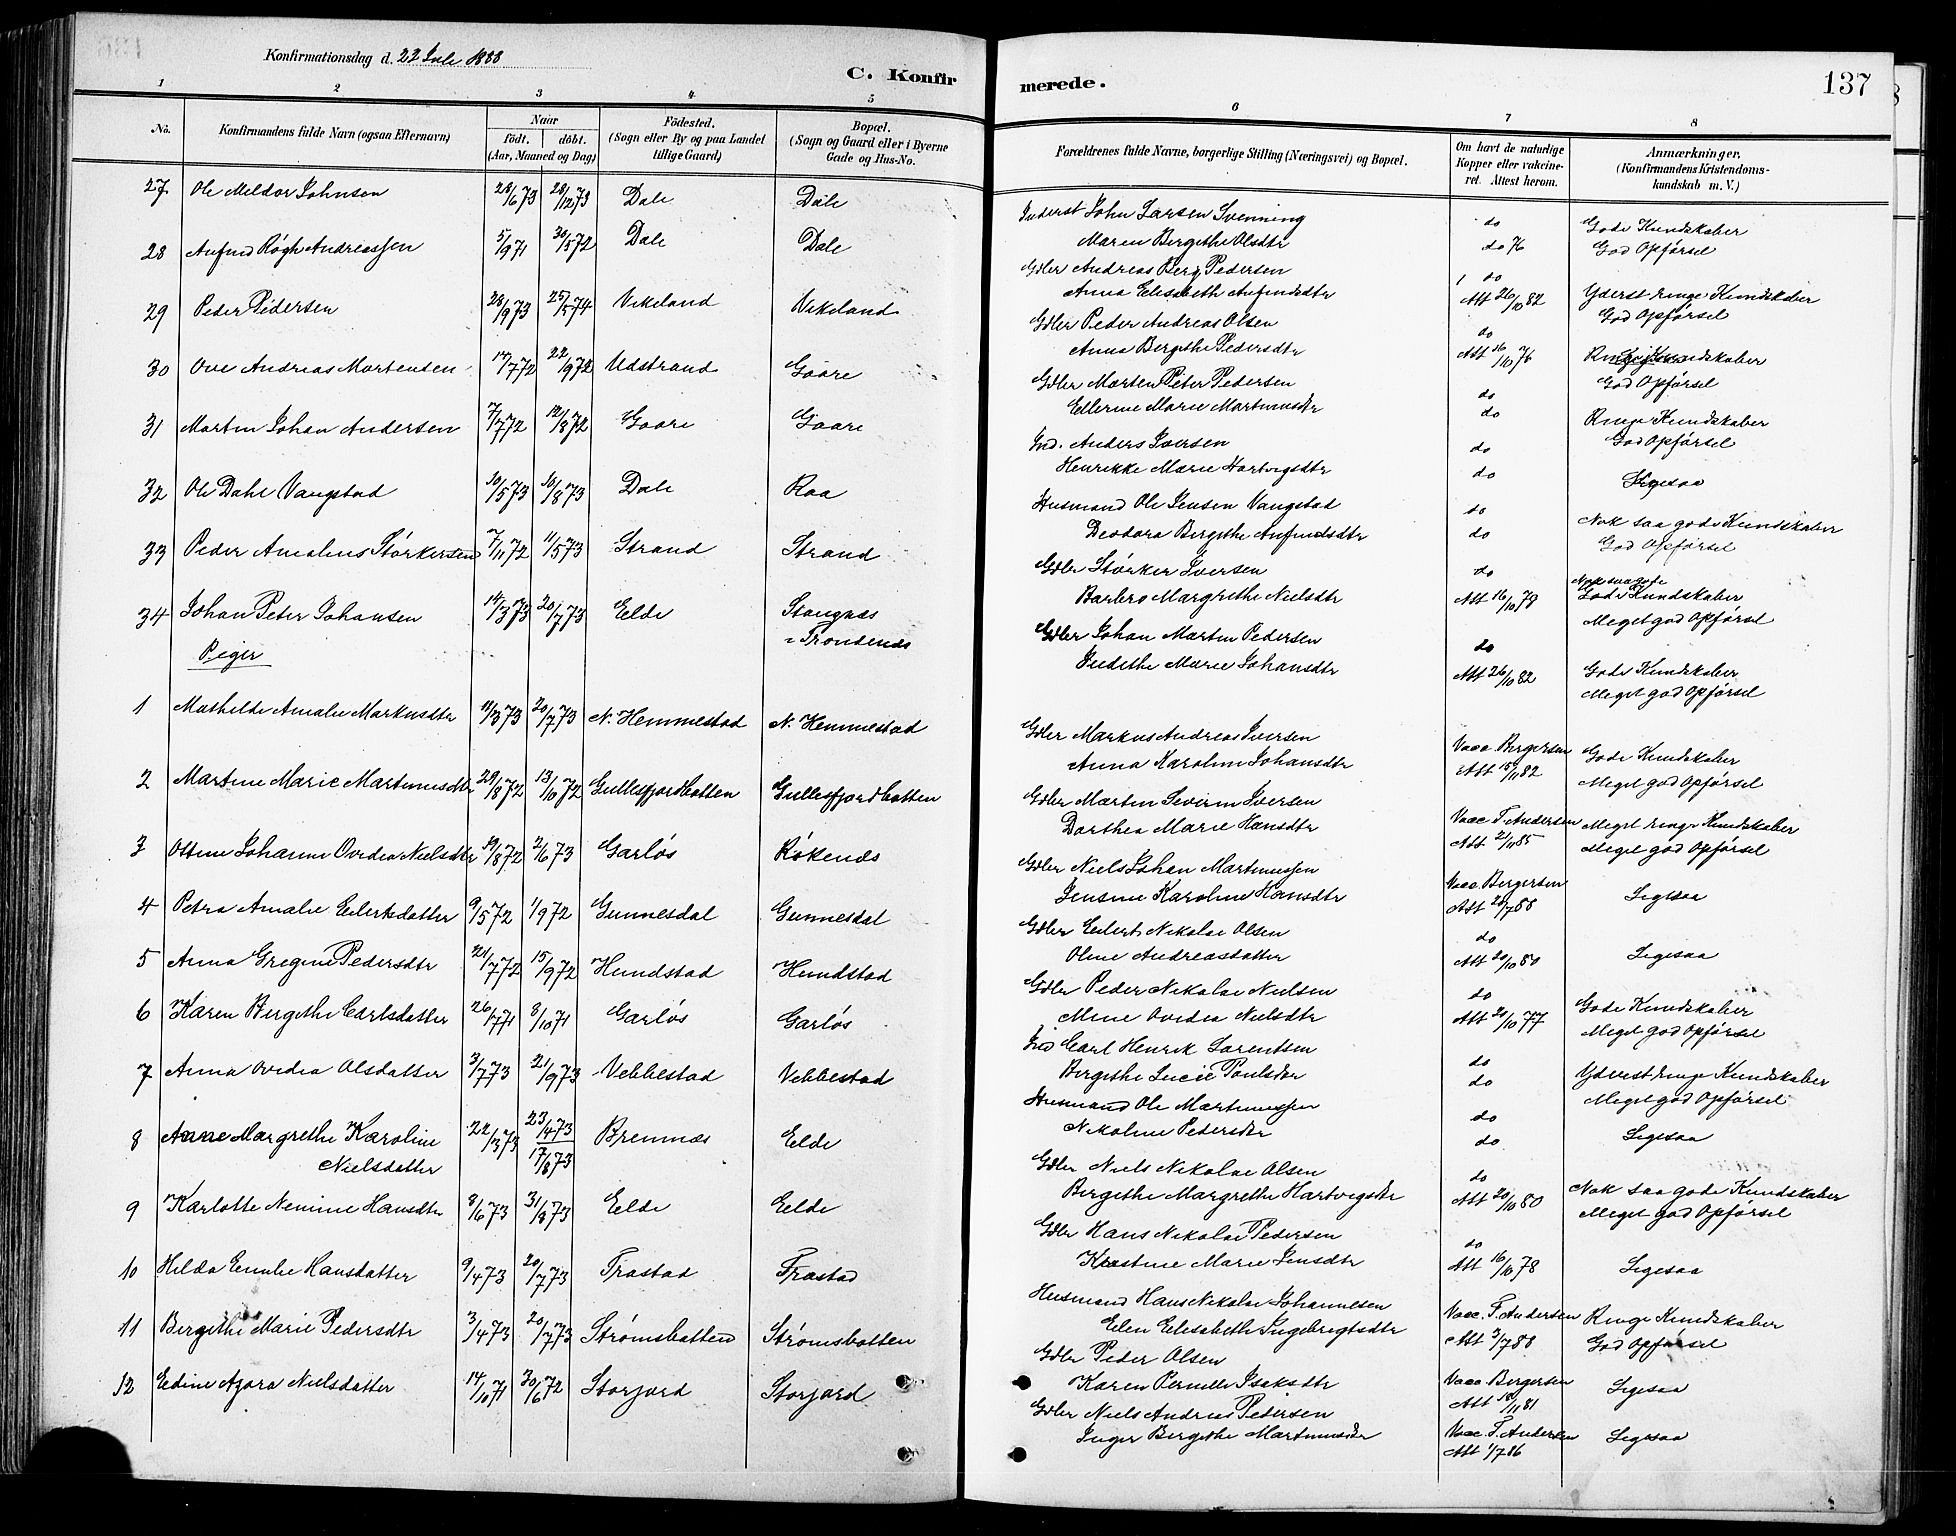 Konfirmationsdag d. 22 Juli 1888
C. Konfir
merede.
137
1 2 3 4 5 6 7 8
No.
Konfirmandens fulde Navn (ogsaa Efternavn)
Naar
födt. döbt.
(Aar, Maaned og Dag)
Födested.
(Sogn eller By og paa Landet
tillige Gaard)
Bopæl.
(Sogn og Gaard eller i Byerne
Gade og Hus-No.
Forældrenes fulde Navne, borgerlige Stilling (Næringsvei) og Bopæl.
Om havt de naturlige
Kopper eller vakcine-
ret. Attest herom.
Anmærkninger.
(Konfirmandens Kristendoms-
kundskab m. V.)
27 Ole Meldor Johnsen 28/6 73 28/12 73 Dale Dale
Inderst John Larsen Svenning do Gode Kundskaber
Maren Bergethe Olsdtr do 76 God Opførsel
28 Anfind Røgh Andreassen 5/9 71 30/5 72 Dale Dale
Gdbr Andreas Berg Pedersen do Yderst ringe Kundskaber
Anna Elisabeth Anfindsdtr Att 26/10 82 God Opførsel
29 Peder Pedersen 28/9 73 25/5 74 Vikeland Vikeland
Gdbr Peder Andreas Olsen do Ringe Kundskaber
Anna Bergithe Pedersdtr Att 16/10 76 God Opførsel
30 Ove Andreas Mortensen 17/7 72 22/9 72 Udstrand Gaare
Gdbr Morten Peter Pedersen do Ringe Kundskaber
Ellerine Marie Martinusdtr do God Opførsel
31 Martin Johan Andersen 7/7 72 12/8 72 Gaare Gaare
Ind. Anders Iversen do Ligesaa
Henrikke Marie Hartvigsdtr do
32 Ole Dahl Vangstad 30/5 73 10/8 73 Dale Raa
Husmand Ole Jensen Vangstad do Nok saa gode Kundskaber
Deodora Bergithe Anfindsdtr do God Opførsel
33 Peder Amalius Størkersen 7/11 72 11/5 73 Strand Strand
Gdbr Størker Iversen do Nok saa gode
Gode Kundskaber
Barbro Margrethe Nielsdtr Att 16/10 78 Meget god Opførsel
34 Johan Peter Johansen 14/3 73 20/7 73 Elde Stangnæs
- Trondenæs
Gdbr Johan Martin Pedersen do Gode Kundskaber
Judithe Marie Johansdtr Att 26/10 82 Meget god Opførsel
Piger
1 Mathilde Amalie Markusdtr 11/3 73 20/7 73 N. Hemmestad N. Hemmestad
Gdbr Markus Andreas Iversen Vacc. Bergersen Gode Kundskaber
Anna Karoline Johansdtr Att 15/11 82 Meget god Opførsel
2 Martine Marie Martinusdtr 29/8 72 13/10 72 Gullesfjordbotten Gullesfjordbotten
Gdbr Martin Severin Iversen Vacc T. Andersen Meget ringe Kundskaber
Dorthea Marie Hansdtr Att 21/11 85 Meget god Opførsel
3 Ottine Johanne Ovidia Nielsdtr 19/8 72 2/6 73 Garløs Røkenæs
Gdbr Niels Johan Martinussen Vacc Bergersen Ligesaa
Jensine Karoline Hansdtr Att 20/7 88
4 Petra Amalie Eilertsdatter 9/5 72 1/9 72 Gunnesdal Gunnesdal
Gdbr Eilert Nikolai Olsen do Ligesaa
Oline Andreasdatter Att 20/10 80
5 Anna Gregine Pedersdtr 21/7 72 15/9 72 Hundstad Hundstad
Gdbr Peder Nikolai Nielsen do Gode Kundskaber
Mine Ovidia Nielsdtr Att 20/10 77 Meget god Opførsel
6 Karen Bergithe Carlsdatter 26/7 71 8/10 71 Garløs Garløs
Ind Carl Henrik Lorentsen do Yderst ringe Kundskaber
Bergithe Lucie Poulsdtr do Meget god Opførsel
7 Anna Ovidia Olsdatter 3/7 73 21/9 73 Vebbestad Vebbestad
Husmand Ole Martinussen do Ligesaa
Nikoline Pedersdtr do
8 Anne Margrethe Karoline 22/3 73 23/4 73 Bremnæs Elde
Nielsdatter 17/8 73
Gdbr Niels Nikolai Olsen do Nok saa gode Kundskaber
Bergithe Margrethe Hartvigsdtr Att 20/10 80 Meget god Opførsel
9 Karlotte Nemine Hansdtr 8/6 73 31/8 73 Elde Elde
Gdbr Hans Nikolai Pedersen do Ligesaa
Kirstine Marie Jensdtr Att 16/10 78
10 Hilda Emilie Hansdatter 9/4 73 20/7 73 Trastad Trastad
Husmand Hans Nikolai Johannesen Vacc. T. Andersen Ringe Kundskaber
Elen Elisabeth Ingebrigtsdtr Att 3/7 88 God Opførsel
11 Bergithe Marie Pedersdtr 3/4 73 20/7 73 Strømsbotten Strømsbotten
Gdbr Peder Olsen Vacc Bergersen Ligesaa
Karen Pernille Isaksdtr Att 18/11 81
12 Edine Azora Nielsdatter 14/10 71 30/6 72 Storjord Storjord
Gdbr Niels Andreas Pedersen Vacc. T. Andersen Ligesaa
Inger Bergithe Martinusdtr Att 1/7 86